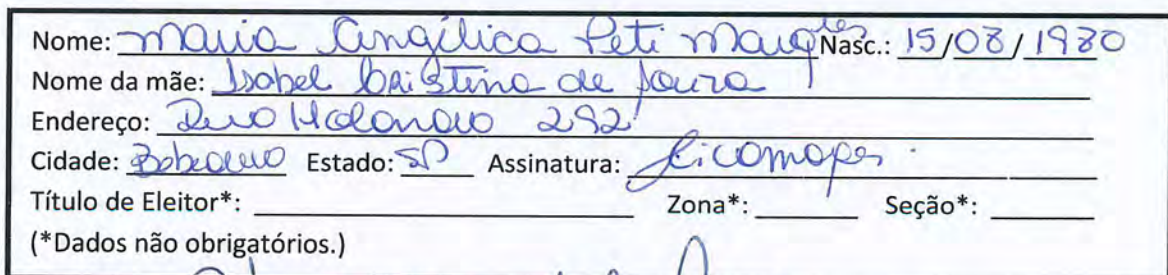 Nome: Maria Angélica Peti Marques Nasc.: 15/08/1980
Nome da mãe: Isabel Cristina de Souza
Endereço: Rua Holanda 292
Cidade: Estado: SP Assinatura:
Título de Eleitor*: Zona*: Seção*:
(*Dados não obrigatórios.)